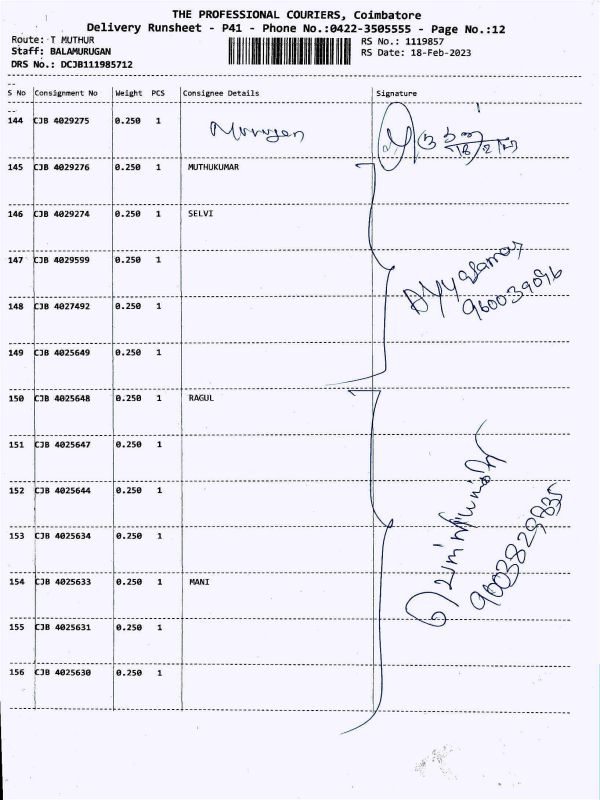 THE PROFESSIONAL COURIERS, Coimbatore
Delivery Runsheet - P41 - Phone No.:0422-3505555 - Page No.:12
Route: T MUTHUR
RS No.: 1119857
Staff: BALAMURUGAN
RS Date: 18-Feb-2023
DRS No.: DCJB111985712
S No Consignment No Weight PCS Consignee Details Signature
144 CJB 4029275 0.250 1 Murugan
145 CJB 4029276 0.250 1 MUTHUKUMAR
146 CJB 4029274 0.250 1 SELVI
147 CJB 4029599 0.250 1
148 CJB 4027492 0.250 1
149 CJB 4025649 0.250 1
150 CJB 4025648 0.250 1 RAGUL
151 CJB 4025647 0.250 1
152 CJB 4025644 0.250 1
153 CJB 4025634 0.250 1
154 CJB 4025633 0.250 1 MANI
155 CJB 4025631 0.250 1
156 CJB 4025630 0.250 1
9003829835